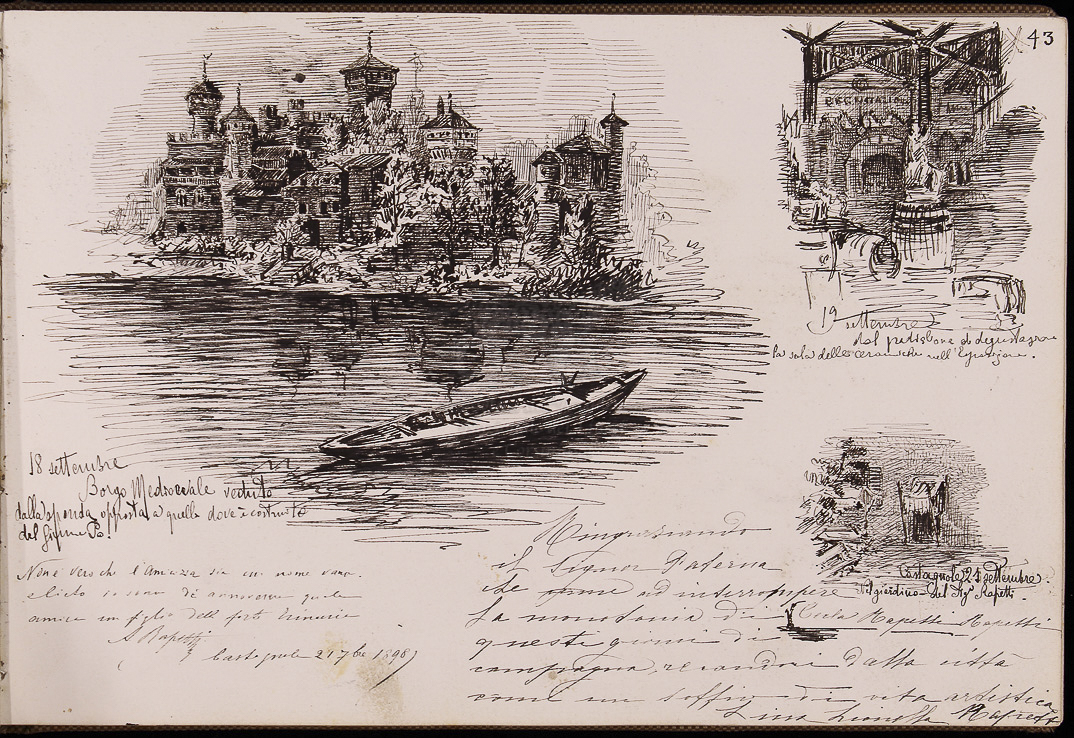 43
18 settembre
Borgo Medioevale veduto
dalla sponda opposta a quella dove è costruito
del fiume Po.
19 settembre
dal padiglione di degustazione
la sala delle ceramiche nell'Esposizione.
Castagnole 21 settembre.
Nel giardino del Sigr Rapetti.
Non è vero che l'Amicizia sia un nome vano.
e lieto io sono di annoverare quale
amico un figlio della forte
S Rapetti
Castagnole 21 7bre 1898
Ringraziando
il Signor Paterna
che venne ad interrompere
la monotonia di
questi giorni di
campagna, recandoci dalla città
come un soffio di vita artistica
Rapetti Rapetti
Lina Rapetti